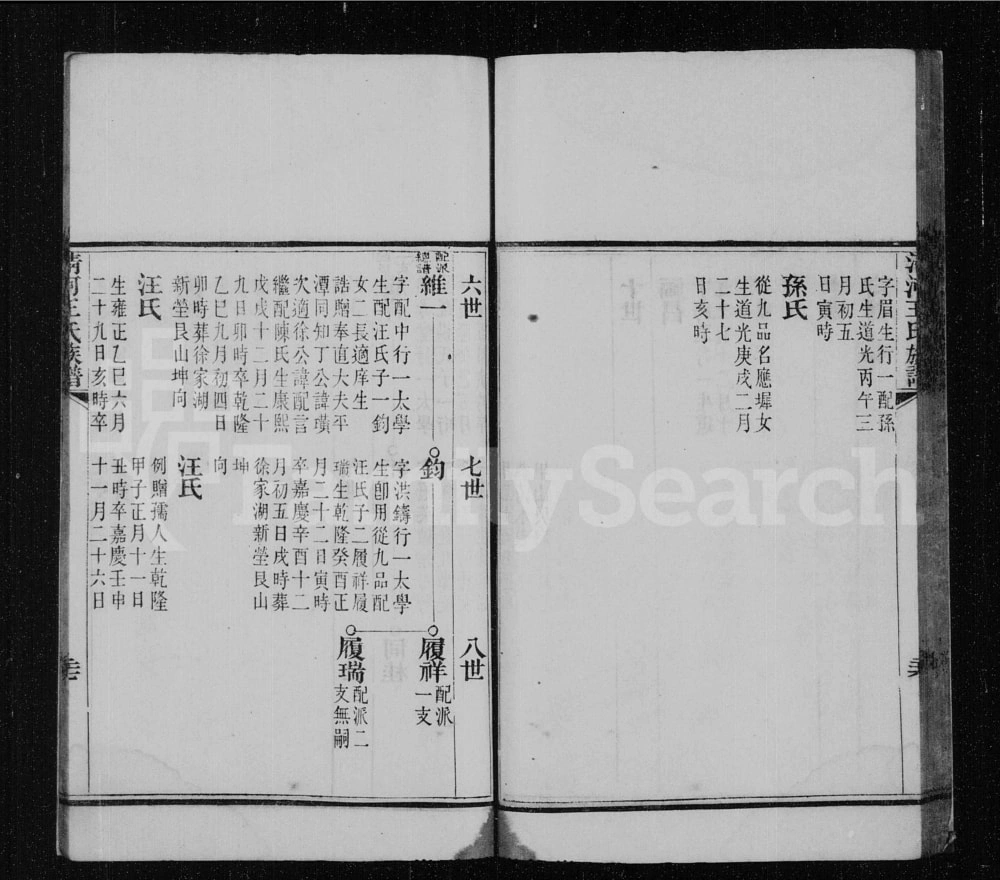 清河王氏族譜
字眉生行一配孫
氏生道光丙午三
月初五
日寅時
孫氏
從九品名應墀女
生道光庚戌二月
二十七
日亥時
六世
七世
八世
配派
總譜
維一
字配中行一太學
生配汪氏子一鈞
女二長適庠生
誥贈奉直大夫平
潭同知丁公諱璜
次適徐公諱配言
繼配陳氏生康熙
戊戌十二月二十
九日卯時卒乾隆
乙巳九月初四日
卯時葬徐家湖
新塋艮山坤向
汪氏
生雍正乙巳六月
二十九日亥時卒
鈞
字洪鑄行一太學
生卽用從九品配
汪氏子二履祥履
瑞生乾隆癸酉正
月二十二日寅時
卒嘉慶辛酉十二
月初五日戌時葬
徐家湖新塋艮山
坤
向
汪氏
例贈孺人生乾隆
甲子正月十一日
丑時卒嘉慶壬申
十一月二十六日
履祥
配派
一支
履瑞
配派二
支無嗣
清河王氏族譜
FamilySearch